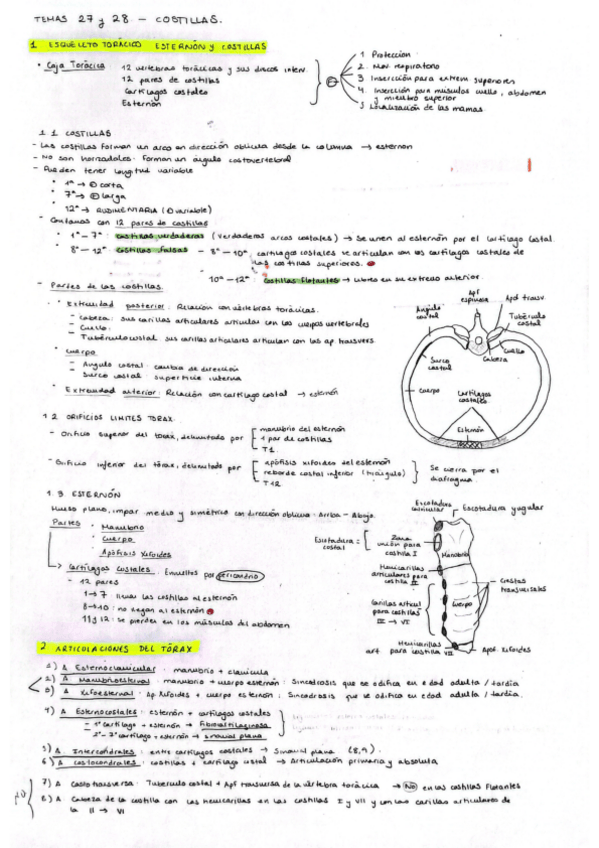 TEMAS 27 y 28 - COSTILLAS.
1 ESQUELETO TORÁCICO ESTERNÓN y COSTILLAS
• Caja Torácica: 12 vertebras torácicas y sus discos interv.
12 pares de costillas
Cartílagos costales
Esternón
1 Protección
2. Mov. respiratorio
3 Inserción para extrem superiores
4. Inserción para músculos cuello, abdomen
y miembro superior
5 Localización de las mamas.
1.1 COSTILLAS
- Las costillas forman un arco en dirección oblicua desde la columna → esternon
- No son horizontales. Forman un ángulo costovertebral
- Pueden tener longitud variable
• 1ª → ⊕ corta
• 7ª → ⊕ larga
• 12ª → RUDIMENTARIA (⊕ variable)
- Contamos con 12 pares de costillas
• 1ª - 7ª costillas verdaderas (verdaderos arcos costales) → Se unen al esternón por el cartílago costal.
• 8ª - 12ª costillas falsas - 8ª - 10ª cartílagos costales se articulan con los cartílagos costales de
las costillas superiores.
10ª - 12ª costillas flotantes → libres en su extremo anterior.
- Partes de las costillas.
• Extremidad posterior: Relación con vértebras torácicas.
- Cabeza: sus carillas articulares articulan con los cuerpos vertebrales
- Cuello:
- Tubérculo costal sus carillas articulares articulan con las ap. transvers.
• Cuerpo
- Angulo costal: cambia de dirección
- Surco costal: superficie interna
• Extremidad anterior: Relación con cartílago costal → esternón
Apf espinosa
Apf transv.
Angulo costal
Tubérculo costal
Surco costal
Cuello
Cabeza
Cuerpo
Cartílagos costales
Esternón
1.2 ORIFICIOS LIMITES TORAX.
- Orificio superior del torax, delimitado por
manubrio del esternón
1 par de costillas
T1.
- Orificio inferior del tórax, delimitado por
apófisis xifoides del esternón
reborde costal inferior (triángulo)
T12
Se cierra por el
diafragma
1.3 ESTERNÓN
Hueso plano, impar medio y simétrico con dirección oblicua: Arriba - Abajo
Partes
• Manubrio
• Cuerpo
Apófisis Xifoides
→ Cartílagos costales: Envueltos por pericondrio
- 12 pares
1 → 7 llevan las costillas al esternón
8 → 10: no llegan al esternón
11 y 12: se pierden en los músculos del abdomen
Escotadura clavicular
Escotadura yugular
Escotadura costal =
Zona unión para costilla I
Manubrio
Hemicarillas articulares para costilla II
Crestas transversales
Carillas articul para costillas III → VI
Cuerpo
Hemicarillas art. para costilla VII
Apof. Xifoides
2 ARTICULACIONES DEL TÓRAX
1) A Esternoclavicular: manubrio + clavícula
2) A Manubrioesternal: manubrio + cuerpo esternon: Sincodrosis que se odifica en edad adulta / tardía
3) A Xifoesternal: Ap. Xifoides + cuerpo esternon: Sincodrosis que se odifica en edad adulta / tardía.
4) A Esternocostales: esternón + cartílagos costales
- 1er cartílago + esternón → Fibrocartilaginosa
- 2º - 7º cartílago + esternón → sinovial plana
5) A. Intercondrales: entre cartílagos costales → Sinovial plana (8,9).
6) A Costocondrales: costillas + cartílago costal → Articulación primaria y absoluta
7) A Costotransversa: Tubérculo costal + Apf transversa de la vértebra torácica → No en las costillas flotantes
8) A. Cabeza de la costilla con las hemicarillas en las costillas I y VII y con las carillas articulares de
la II → VI